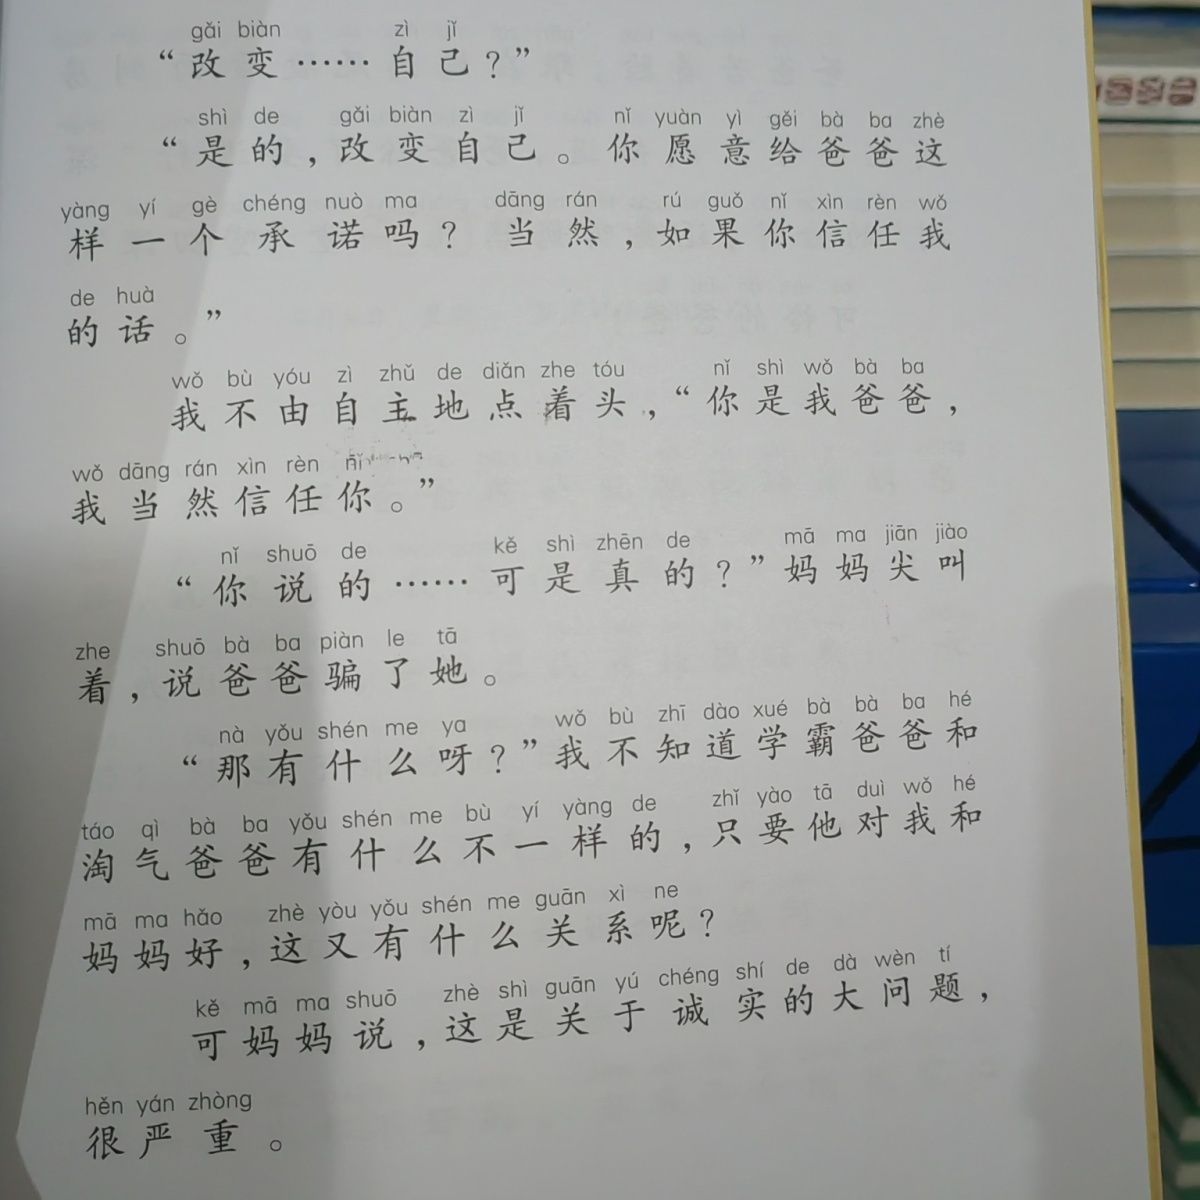 gǎi biàn zì jǐ
“改变……自己？”
shì de gǎi biàn zì jǐ nǐ yuàn yì gěi bà ba zhè
“是的，改变自己。你愿意给爸爸这
yàng yí gè chéng nuò ma dāng rán rú guǒ nǐ xìn rèn wǒ
样一个承诺吗？当然，如果你信任我
de huà
的话。”
wǒ bù yóu zì zhǔ de diǎn zhe tóu nǐ shì wǒ bà ba
我不由自主地点着头，“你是我爸爸，
wǒ dāng rán xìn rèn nǐ
我当然信任你。”
nǐ shuō de kě shì zhēn de mā ma jiān jiào
“你说的……可是真的？”妈妈尖叫
zhe shuō bà ba piàn le tā
着，说爸爸骗了她。
nà yǒu shén me ya wǒ bù zhī dào xué bà bà ba hé
“那有什么呀？”我不知道学霸爸爸和
táo qì bà ba yǒu shén me bù yí yàng de zhǐ yào tā duì wǒ hé
淘气爸爸有什么不一样的，只要他对我和
mā ma hǎo zhè yòu yǒu shén me guān xì ne
妈妈好，这又有什么关系呢？
kě mā ma shuō zhè shì guān yú chéng shí de dà wèn tí
可妈妈说，这是关于诚实的大问题，
hěn yán zhòng
很严重。